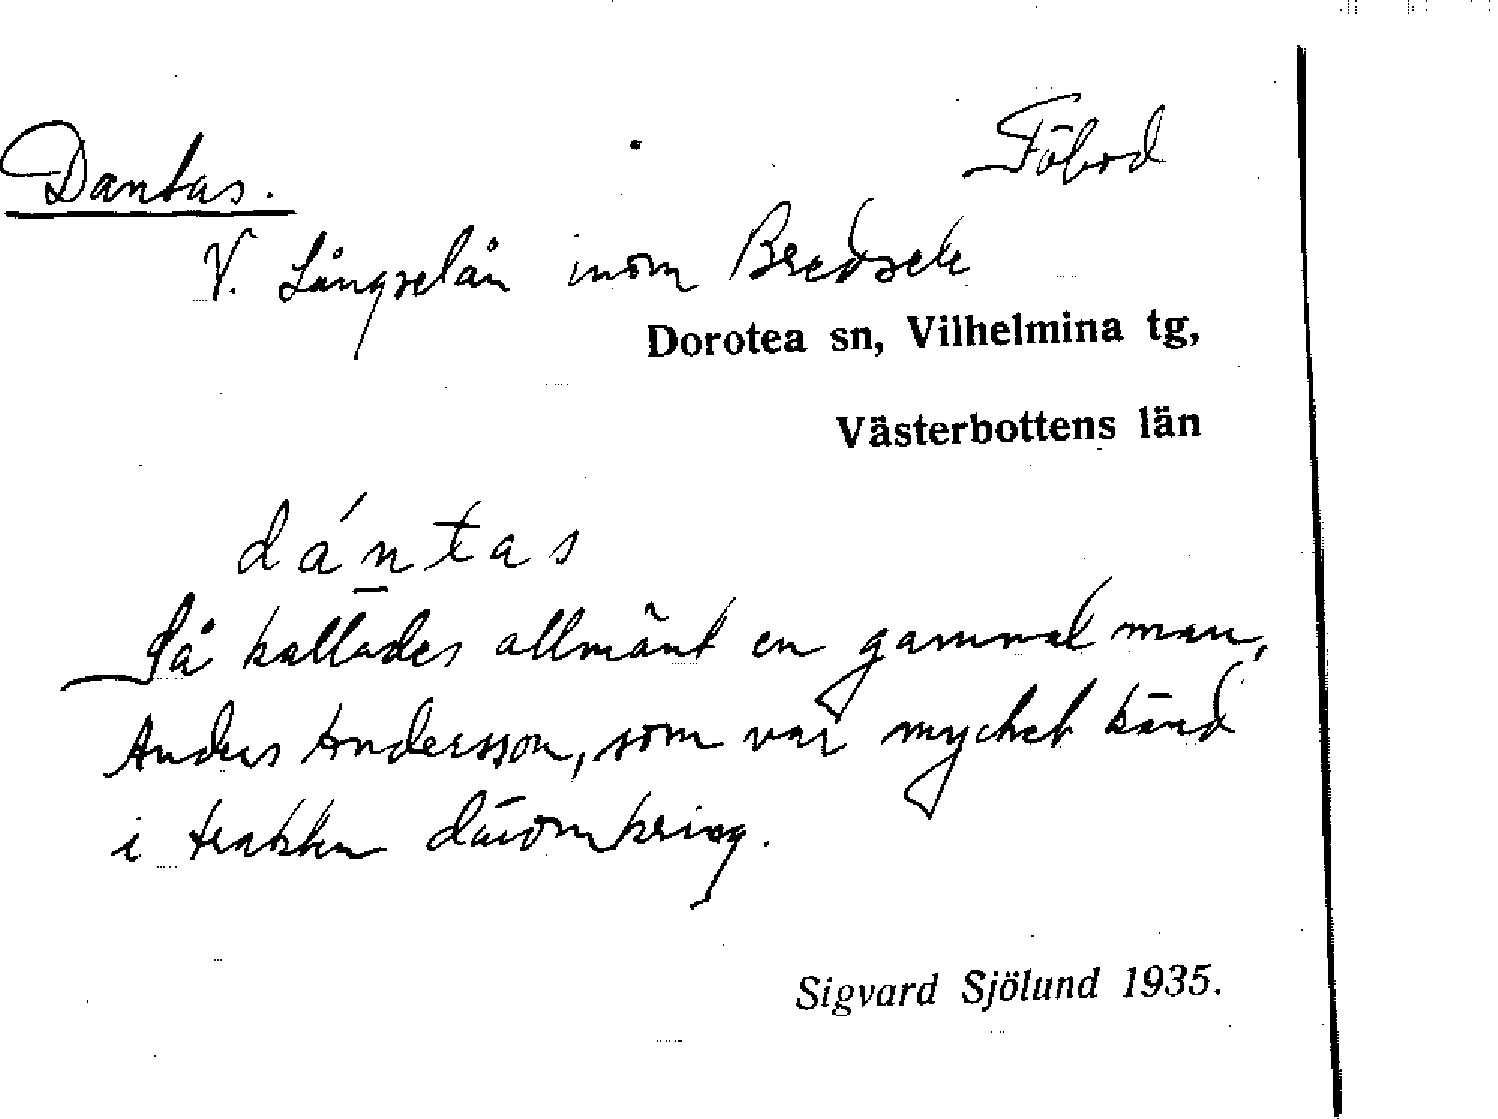 Dantas.
Föbod
V. Långselån inom Bredsele
Dorotea sn, Vilhelmina tg,
Västerbottens län
dántas
Så kallades allmänt en gammal man,
Anders Andersson, som var mycket känd
i trakten däromkring.
Sigvard Sjölund 1935.